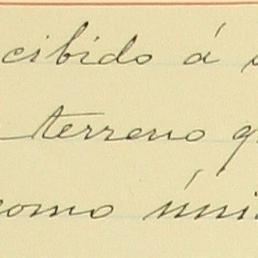 cibido á
terreno q
como úni